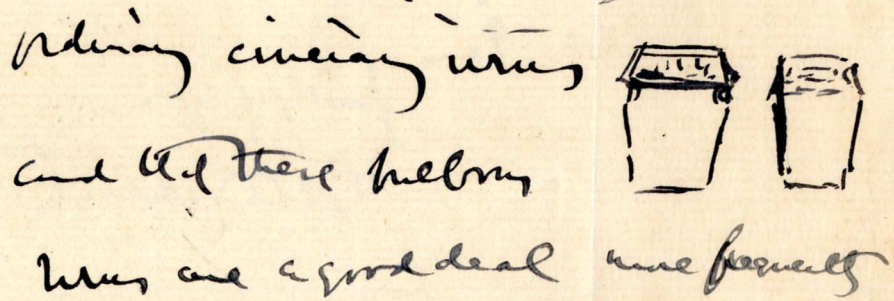 ordinary cinerary urns
and that these bulbous
urns are a good deal more frequently